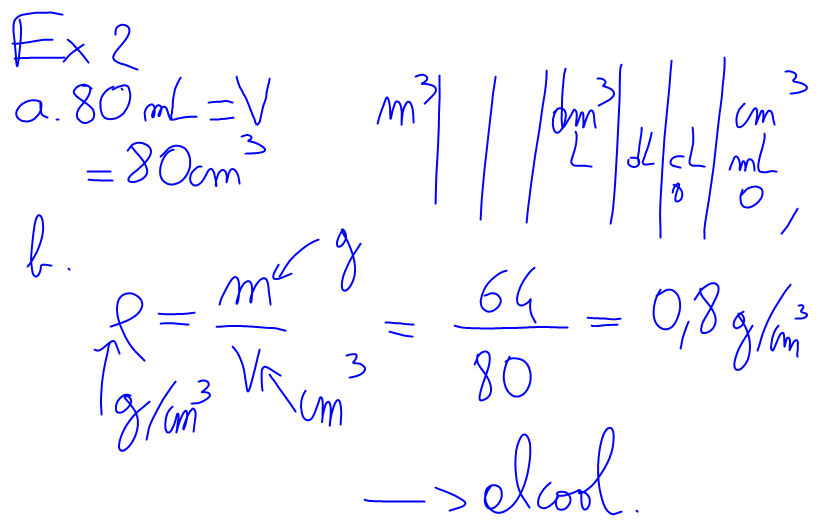 Ex 2
a. 80 mL = V
= 80 cm³
m³ | | | dm³ | | | cm³
L | dL | cL | mL
8 | 0 ,
b.
ρ = m / V = 64 / 80 = 0,8 g/cm³
g
g/cm³
cm³
→ alcool.